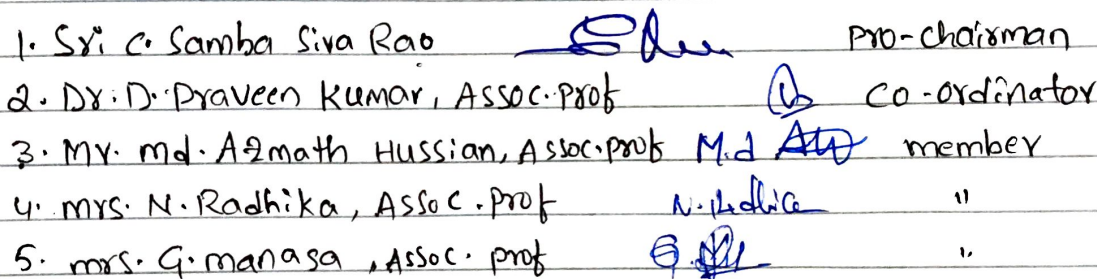 1. Sri C. Samba Siva Rao pro-chairman
2. Dr. D. Praveen Kumar, Assoc. prof co-ordinator
3. Mr. md. Azmath Hussian, Assoc. prof M.d member
4. mrs. N. Radhika, Assoc. prof N. Radhica "
5. mrs. G. manasa, Assoc. prof G. "